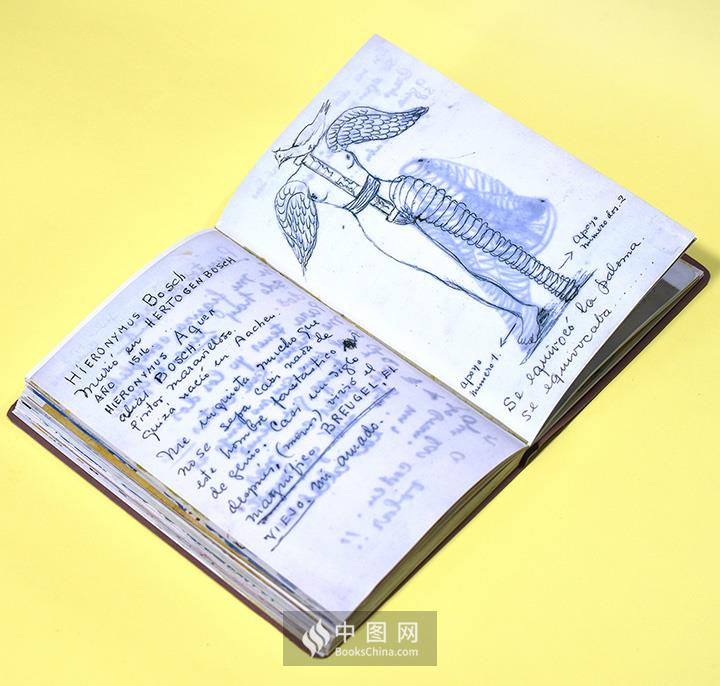 HIERONYMUS Bosch
Murio en HERTOGENBOSCH
AÑO 1516.
HIERONYMUS AQUEN
alias BOSCH.
Pintor maravilloso.
Quiza nació en Aachen.
Me inquieta mucho que
no se sepa casi nada de
este hombre fantástico
de genio. Casi un siglo
despues, (menos), vivió el
magnifico BREUGEL, EL
VIEJO. mi amado.
apoyo
numero dos. 2
apoyo
numero 1.
Se equivocó la paloma
se equivocaba........
中图网
BooksChina.com